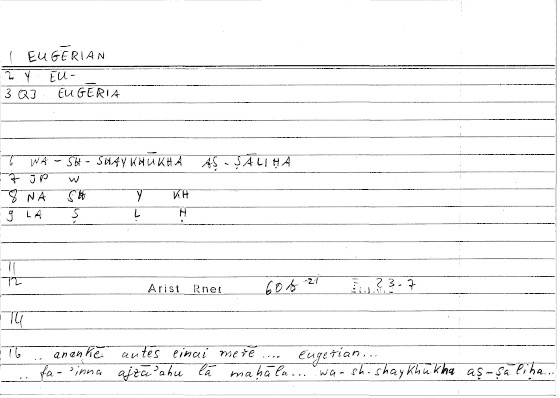 1 EUGĒRIAN
2 Y EU-
3 Q3 EUGĒRIA
6 WA - SH - SHAYKHŪKHA AṢ - ṢĀLIḤA
7 JP W
8 NA SH Y KH
9 LA Ṣ L Ḥ
11
12 Arist Rhet 60b -21 23-7
14
16 .. anankē autēs einai merē .... eugerian...
.. fa-ʾinna ajzāʾahu lā maḥāla... wa-sh-shaykhūkha aṣ-ṣāliḥa...